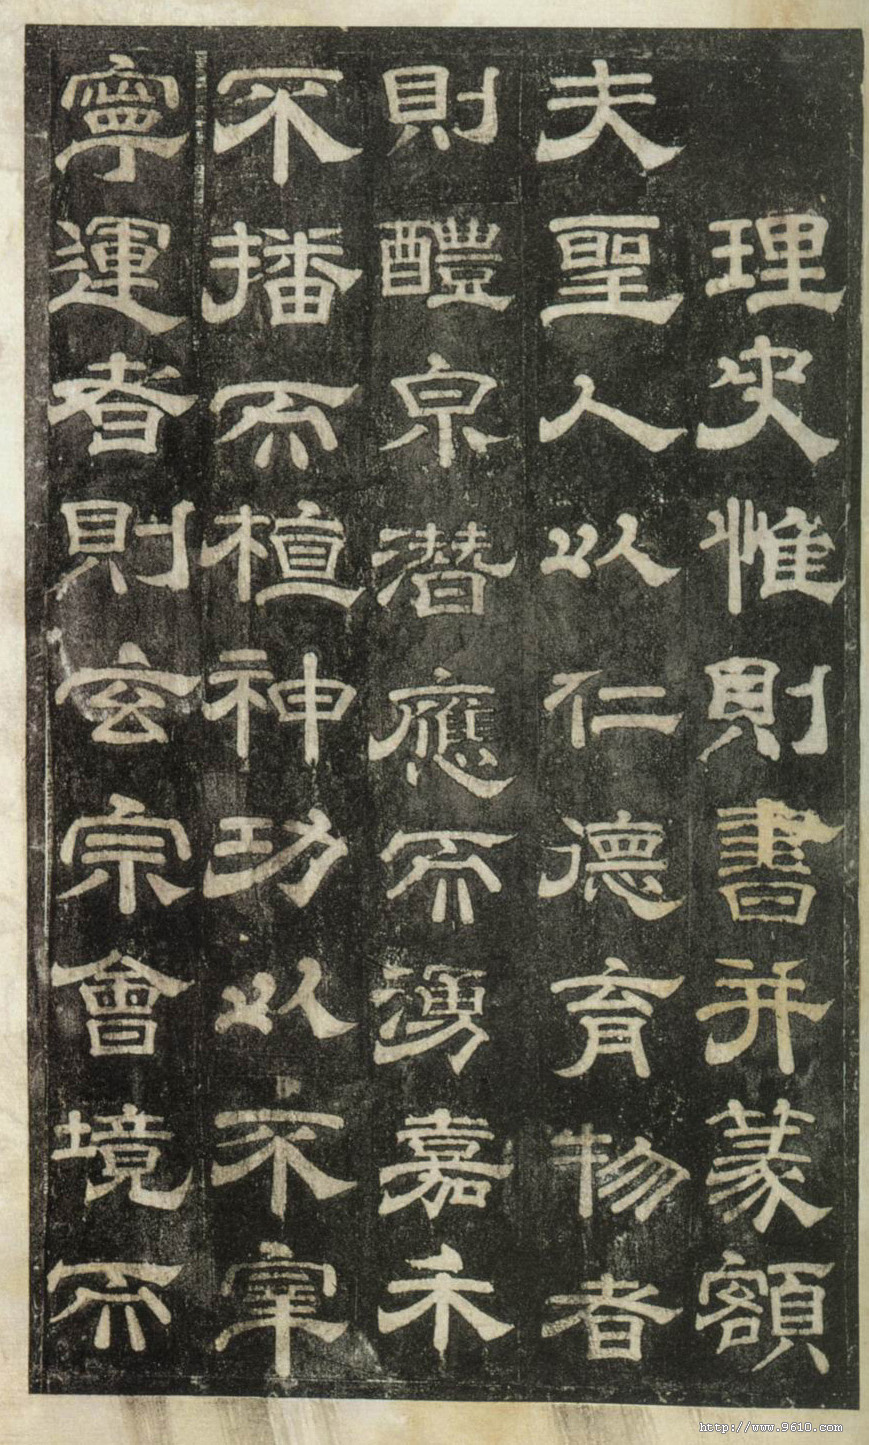 理史惟則書并篆額
夫聖人以仁德育物者
則醴泉潛應而湧嘉禾
不播而植神功以不宰
寧運者則玄宗會境而
http://www.9610.com